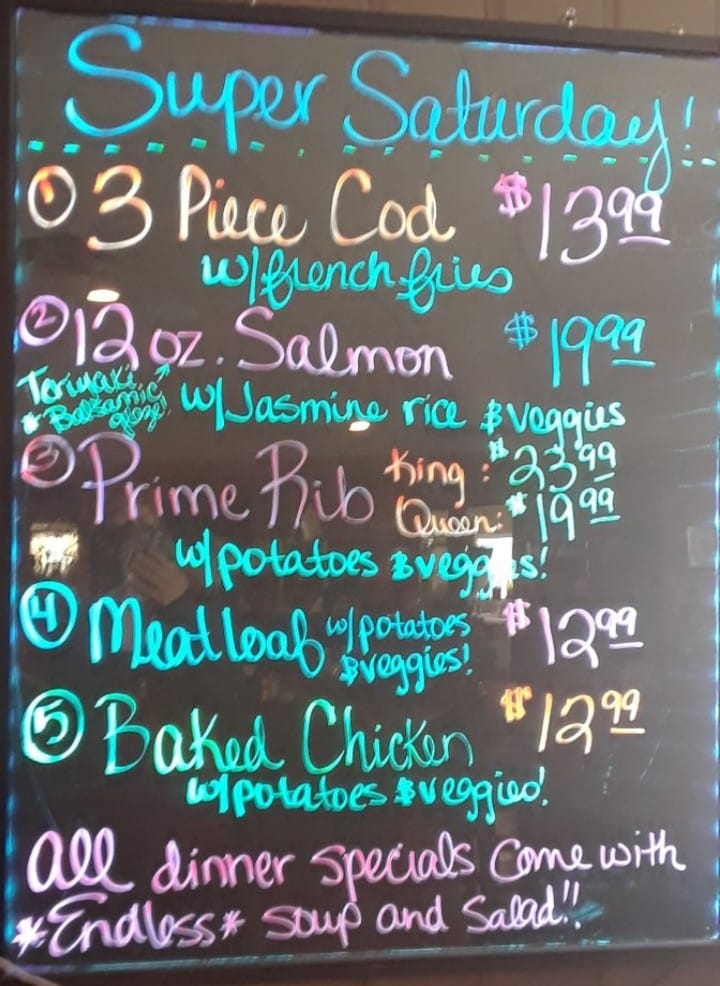 Super Saturday!
① 3 Piece Cod $13.99
w/french fries
② 12 oz. Salmon $19.99
Teriyaki
* Balsamic glaze!
w/Jasmine rice & veggies
③ Prime Rib King: $23.99
Queen: $19.99
w/potatoes & veggies!
④ Meatloaf w/potatoes & veggies! $12.99
⑤ Baked Chicken $12.99
w/potatoes & veggies!
All dinner specials come with
*Endless* soup and salad!!